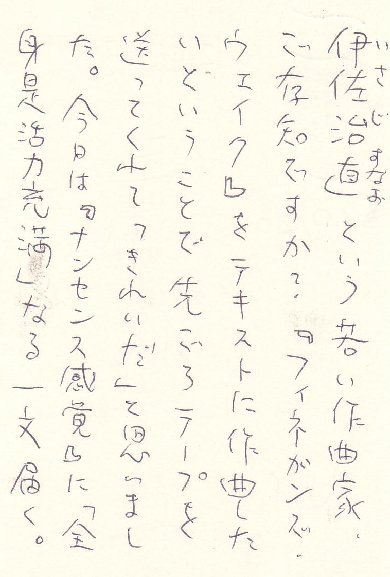 いさじ すなお
伊佐治直という若い作曲家、
ご存知ですか？『フィネガンズ・
ウェイク』をテキストに作曲した
いということで先ごろテープを
送ってくれて「きれいだ」と思いまし
た。今日は『ナンセンス感覚』に「全
身是活力充満」なる一文届く。